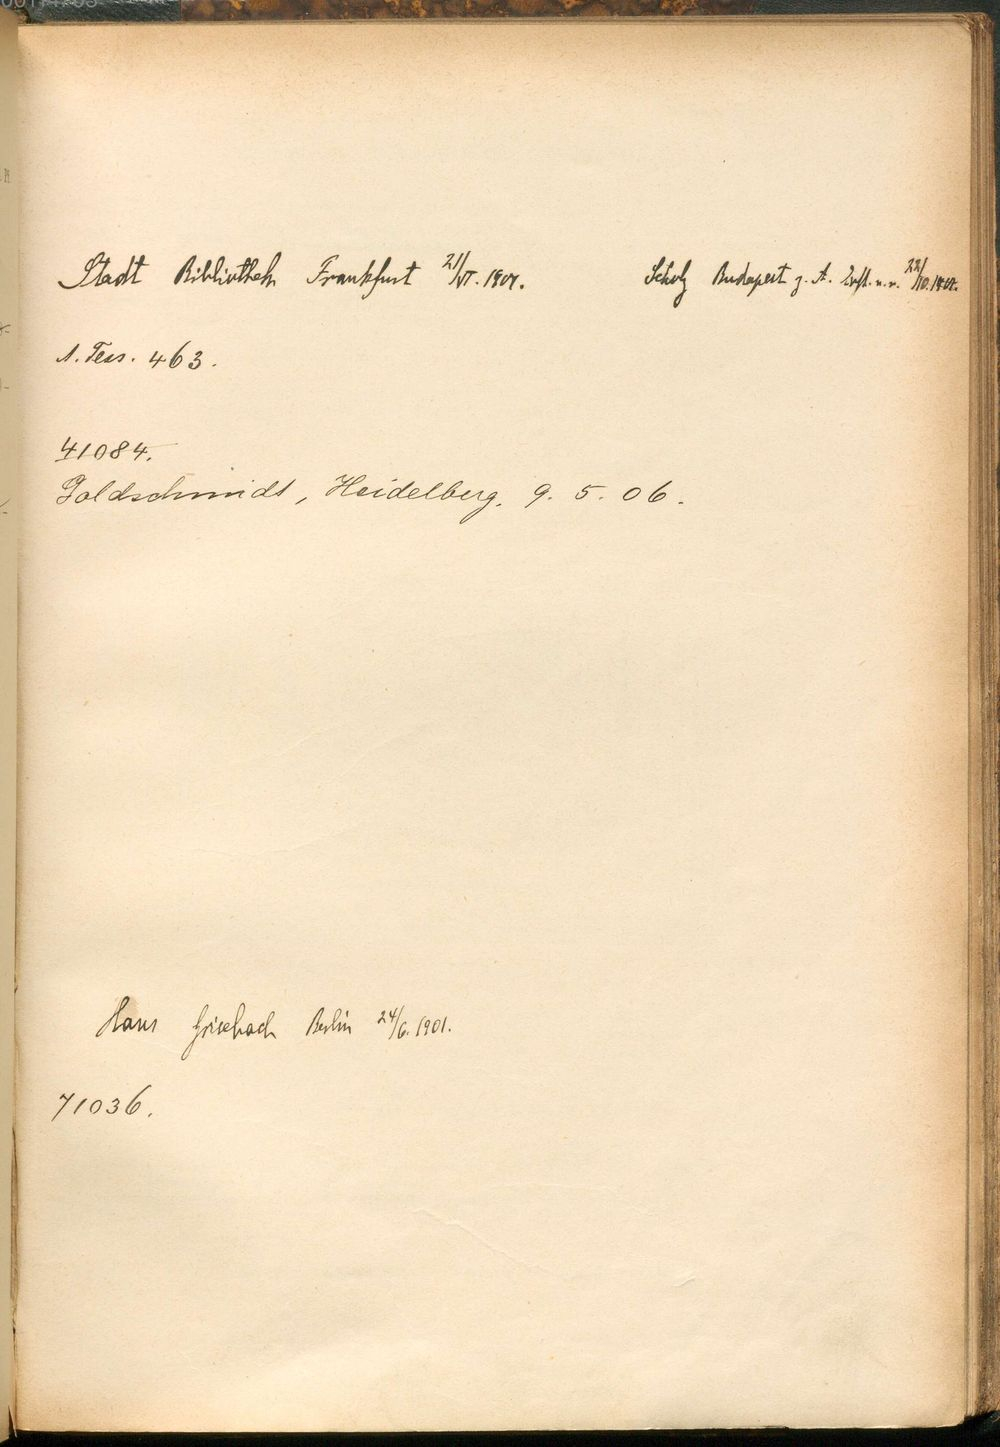 Stadt Bibliothek Frankfurt 21/VI. 1904. Scholz Budapest z. A. 22/10.1904.
N. Tess. 463.
41084.
Goldschmidt, Heidelberg, 9. 5. 06.
Hans Grisebach Berlin 24/6. 1901.
71036.